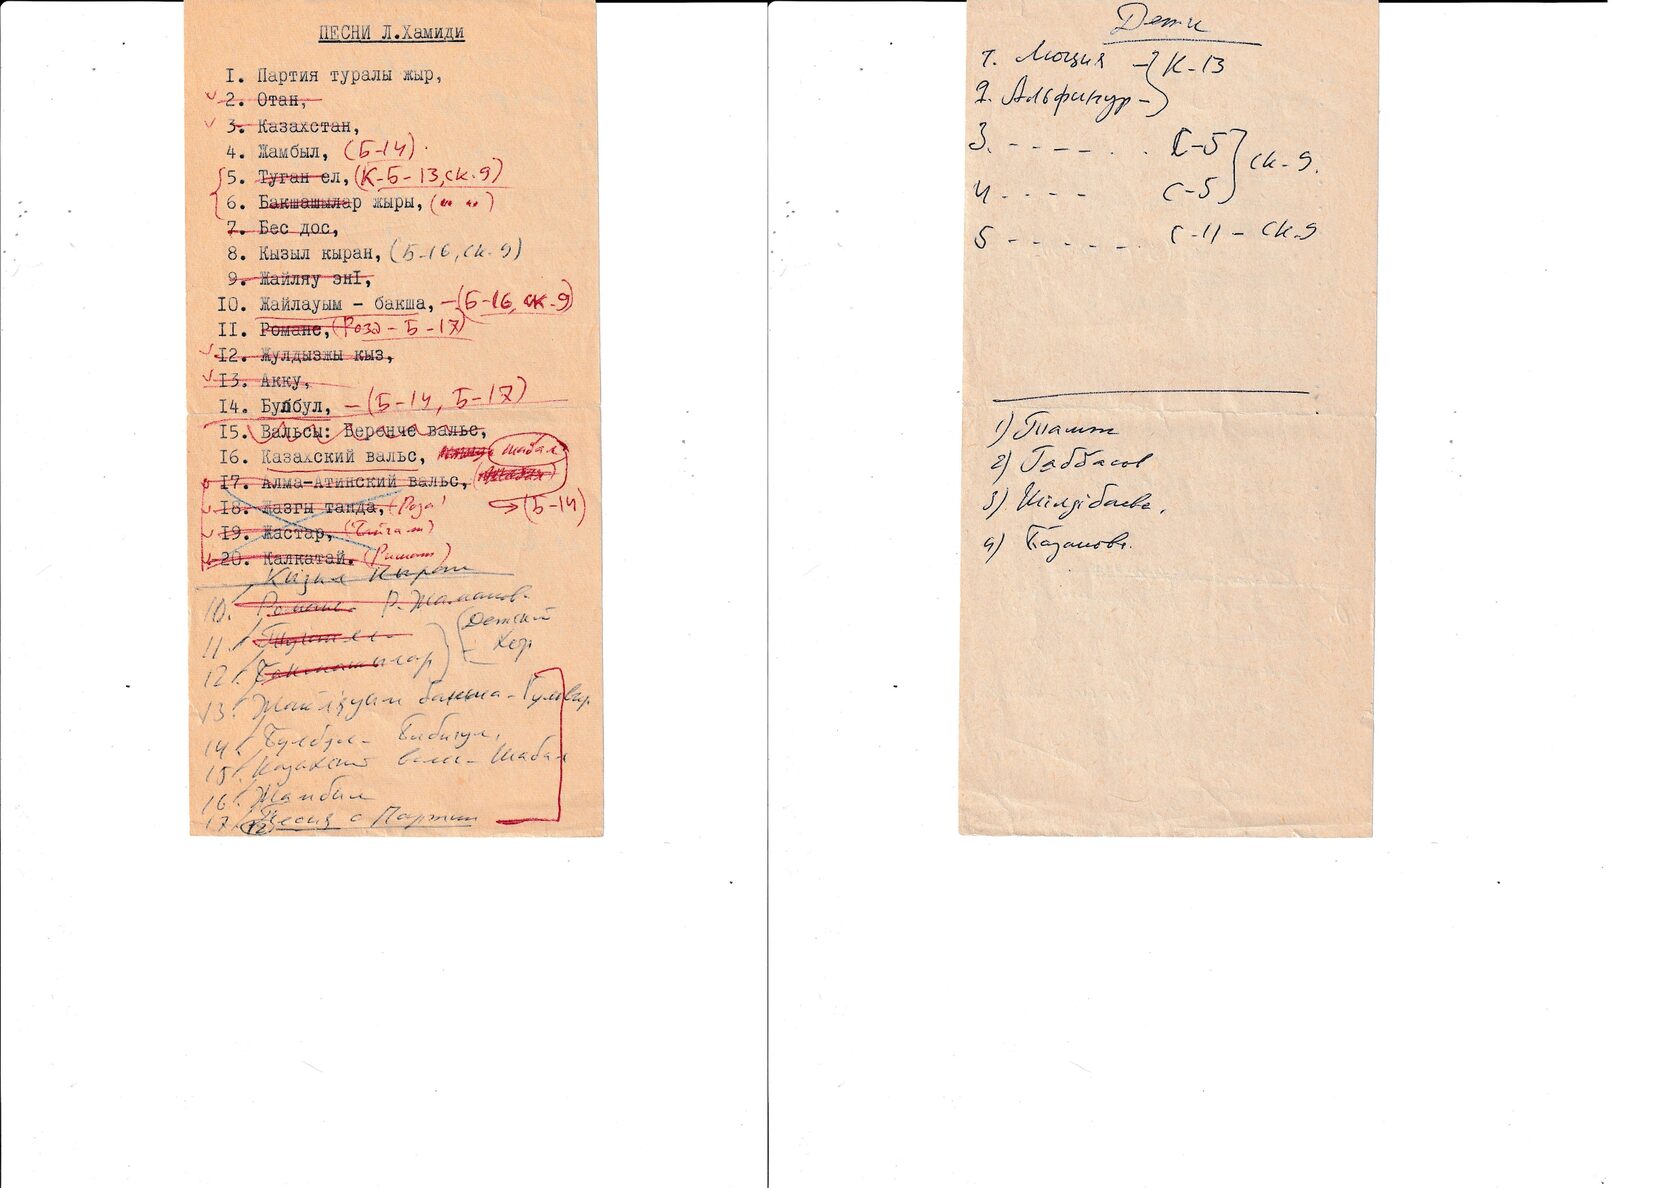 ПЕСНИ Л.Хамиди
I. Партия туралы жыр,
2. Отан,
3. Казахстан,
4. Жамбыл, (Б-14)
5. Туган ел, (К-Б-13, ск.9)
6. Бакшашылар жыры, (" ")
7. Бес дос,
8. Кызыл кыран, (Б-16, ск.9)
9. Жайляу энI,
IO. Жайлауым - бакша, - (Б-16, ск-9)
II. Романс, (Роза - Б-17)
I2. Жулдызжы кыз,
I3. Акку,
I4. Булбул, - (Б-14, Б-17)
I5. Вальсы: Беренче вальс,
I6. Казахский вальс, Шабал
I7. Алма-Атинский вальс,
I8. Жазгы танда, (Роза) (Б-14)
I9. Жастар,
20. Калкатай. (Ришат)
Кызыл Кыран
10. Романс Р. Жаманова
11. Детский
12. Бакшашылар Хор
13. Жайлауым бакша - Гулвир
14. Булбул - Бибигул,
15. Казахский вальс - Шабал
16. Жамбыл
17. Песня о Партии
(12)
Дети
1. Люция - К-13
2. Альфинур -
3. - - - - - . С-5
ск-9.
4. - - - - С-5
5 - - - - - - С-11 - ск-9
1)
2) Габбасов
3) Шілдібаева,
4) Базанова.